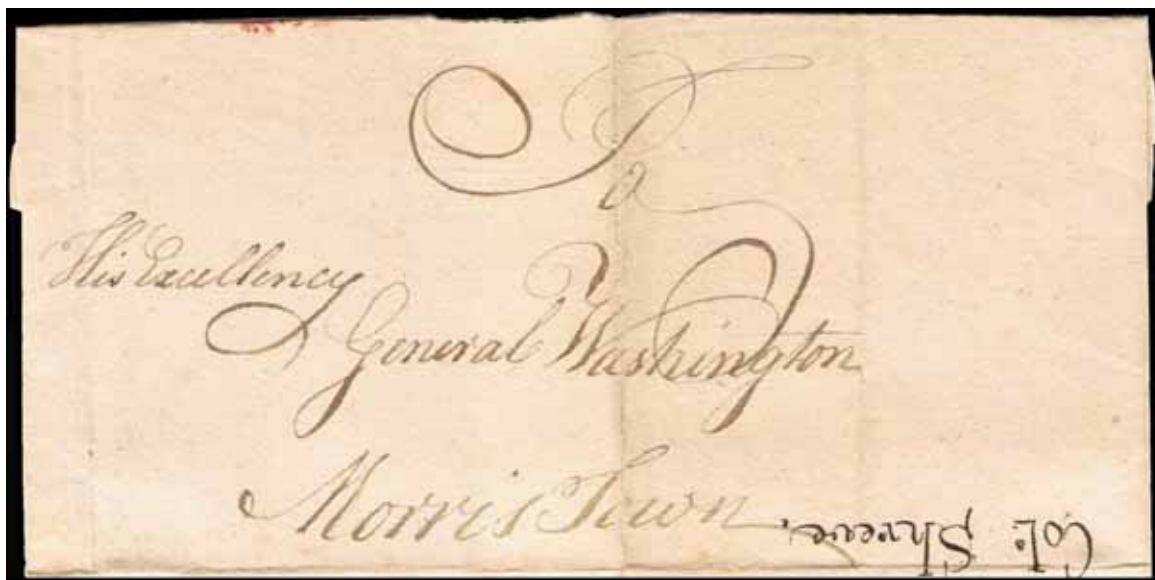 To
His Excellency
General Washington
Morris Town
Col: Shreve.